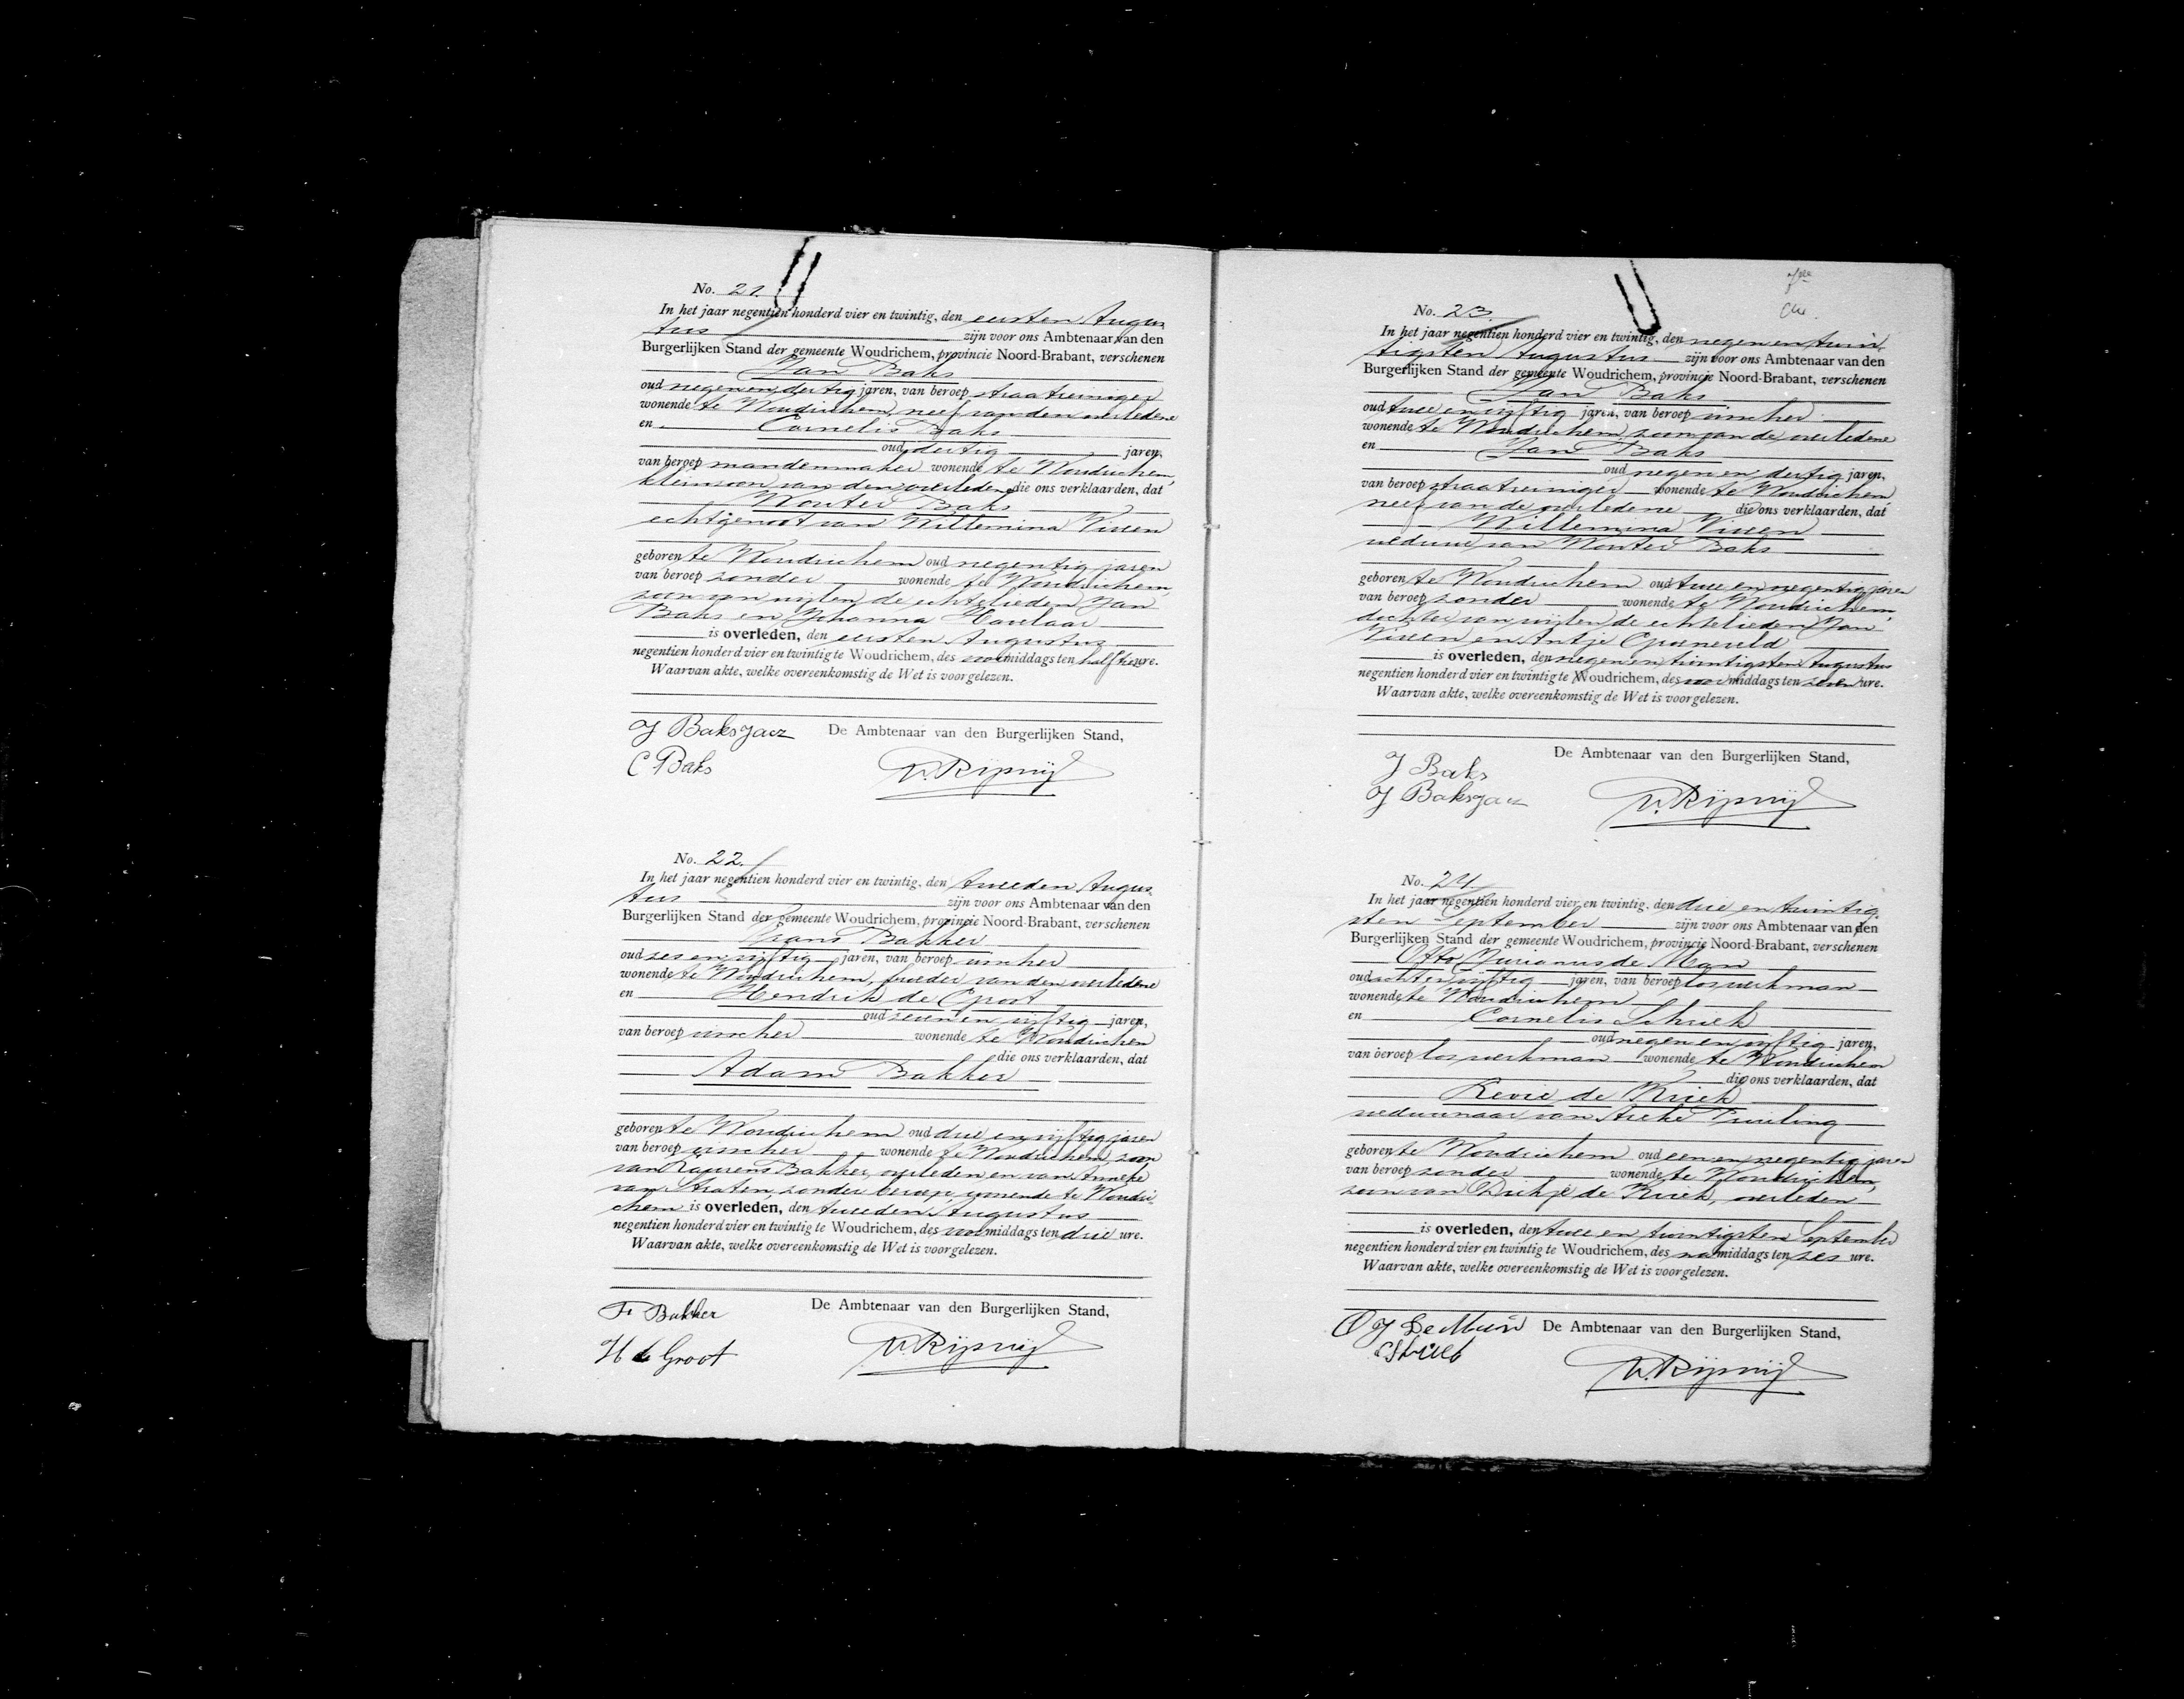 No. 21.
In het jaar negentien honderd vier en twintig, den eersten Augus
tus zijn voor ons Ambtenaar van den
Burgerlijken Stand der gemeente Woudrichem, provincie Noord-Brabant, verschenen
Jan Baks
oud negen en dertig jaren, van beroep straatreiniger
wonende te Woudrichem, neef van den overledene
en Cornelis Baks
oud dertig jaren,
van beroep mandenmaker wonende te Woudrichem,
kleinzoon van den overledene die ons verklaarden, dat
Wouter Baks
echtgenoot van Willemina Vissen
geboren te Woudrichem oud negentig jaren
van beroep zonder wonende te Woudrichem
zoon van wijlen de echtelieden Jan
Baks en Johanna Havelaar
is overleden, den eersten Augustus
negentien honderd vier en twintig te Woudrichem, des voormiddags ten half tien ure.
Waarvan akte, welke overeenkomstig de Wet is voorgelezen.
J Baks Jacz De Ambtenaar van den Burgerlijken Stand,
C Baks
No. 22.
In het jaar negentien honderd vier en twintig, den tweeden Augus
tus zijn voor ons Ambtenaar van den
Burgerlijken Stand der gemeente Woudrichem, provincie Noord-Brabant, verschenen
Frans Bakker
oud zes en vijftig jaren, van beroep visscher
wonende te Woudrichem, broeder van den overledene
en Hendrik de Groot
oud zeven en vijftig jaren,
van beroep visscher wonende te Woudrichem
die ons verklaarden, dat
Adam Bakker
geboren te Woudrichem oud drie en vijftig jaren
van beroep visscher wonende te Woudrichem, zoon
van Laurens Bakker, overleden en van Anneke
van Straten, zonder beroep wonende te Woudri-
chem is overleden, den tweeden Augustus
negentien honderd vier en twintig te Woudrichem, des voormiddags ten drie ure.
Waarvan akte, welke overeenkomstig de Wet is voorgelezen.
F. Bakker De Ambtenaar van den Burgerlijken Stand,
H de Groot
No. 23.
In het jaar negentien honderd vier en twintig, den negen en twin
tigsten Augustus zijn voor ons Ambtenaar van den
Burgerlijken Stand der gemeente Woudrichem, provincie Noord-Brabant, verschenen
Jan Baks
oud twee en vijftig jaren, van beroep visscher
wonende te Woudrichem, zoon van de overledene
en Jan Baks
oud negen en dertig jaren,
van beroep straatreiniger wonende te Woudrichem,
neef van de overledene die ons verklaarden, dat
Willemina Vissen
weduwe van Wouter Baks
geboren te Woudrichem oud twee en negentig jaren
van beroep zonder wonende te Woudrichem,
dochter van wijlen de echtelieden Jan
Vissen en Antje Groeneveld
is overleden, den negen en twintigsten Augustus
negentien honderd vier en twintig te Woudrichem, des voormiddags ten zeven ure.
Waarvan akte, welke overeenkomstig de Wet is voorgelezen.
De Ambtenaar van den Burgerlijken Stand,
J Baks
J Baks Jacz
No. 24.
In het jaar negentien honderd vier en twintig, den drie en twintig
sten September zijn voor ons Ambtenaar van den
Burgerlijken Stand der gemeente Woudrichem, provincie Noord-Brabant, verschenen
Otto Jurianus de Man
oud acht en vijftig jaren, van beroep los werkman
wonende te Woudrichem
en Cornelis
oud negen en vijftig jaren,
van beroep los werkman wonende te Woudrichem
die ons verklaarden, dat
de Kriek
weduwnaar van
geboren te Woudrichem oud een en negentig jaren
van beroep zonder wonende te Woudrichem,
zoon van de Kriek, overleden
is overleden, den twee en twintigsten September
negentien honderd vier en twintig te Woudrichem, des namiddags ten zes ure.
Waarvan akte, welke overeenkomstig de Wet is voorgelezen.
O J de Man De Ambtenaar van den Burgerlijken Stand,